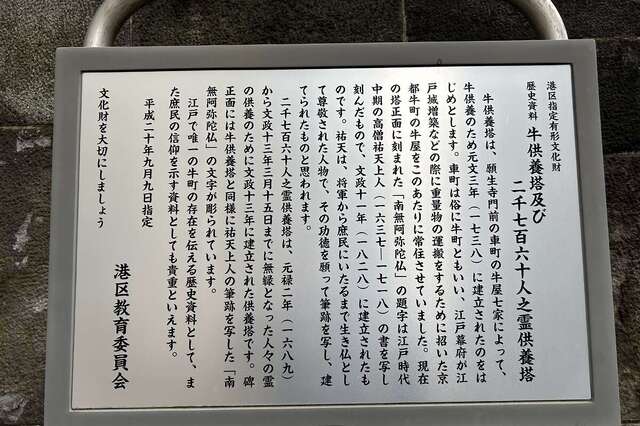 港区指定有形文化財
歴史資料 牛供養塔及び
二千七百六十人之霊供養塔
牛供養塔は、願生寺門前の車町の牛屋七家によって、
牛供養のため元文三年(一七三八)に建立されたのをは
じめとします。車町は俗に牛町ともいい、江戸幕府が江
戸城増築などの際に重量物の運搬をするために招いた京
都牛町の牛屋をこのあたりに常住させていました。現在
の塔正面に刻まれた「南無阿弥陀仏」の題字は江戸時代
中期の高僧祐天上人(一六三七―一七一八)の書を写し
刻んだもので、文政十一年(一八二八)に建立されたも
のです。祐天は、将軍から庶民にいたるまで生き仏とし
て尊敬された人物で、その功徳を願って筆跡を写し、建
てられたものと思われます。
二千七百六十人之霊供養塔は、元禄二年(一六八九)
から文政十三年三月十五日までに無縁となった人々の霊
の供養のために文政十三年に建立された供養塔です。碑
正面には牛供養塔と同様に祐天上人の筆跡を写した「南
無阿弥陀仏」の文字が彫られています。
江戸で唯一の牛町の存在を伝える歴史資料として、ま
た庶民の信仰を示す資料としても貴重といえます。
平成二十年九月九日指定
文化財を大切にしましょう
港区教育委員会